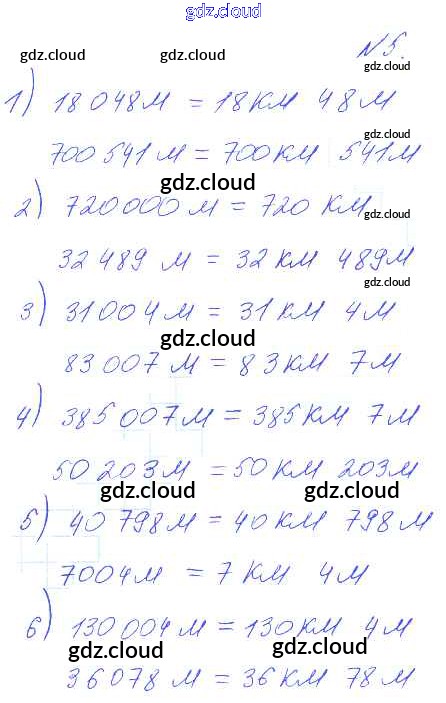 gdz.cloud
gdz.cloud gdz.cloud gdz.cloud
№5.
gdz.cloud
1) 18 048 м = 18 км 48 м
gdz.cloud
700 541 м = 700 км 541 м
gdz.cloud
2) 720 000 м = 720 км
gdz.cloud
32 489 м = 32 км 489 м
gdz.cloud
3) 31 004 м = 31 км 4 м
gdz.cloud
83 007 м = 83 км 7 м
gdz.cloud
4) 385 007 м = 385 км 7 м
50 203 м = 50 км 203 м
gdz.cloud gdz.cloud
5) 40 798 м = 40 км 798 м
7004 м = 7 км 4 м
6) 130 004 м = 130 км 4 м
gdz.cloud gdz.cloud
36 078 м = 36 км 78 м